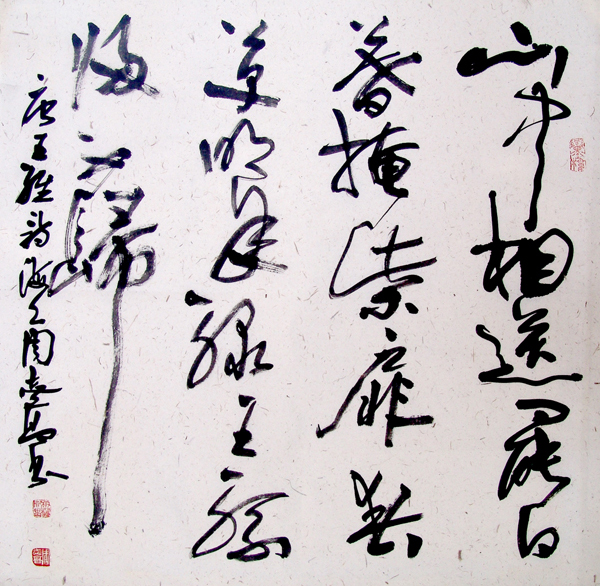 山中相送罷日
暮掩柴扉春
草明年綠王孫
歸不歸
唐王維詩海上周志高書